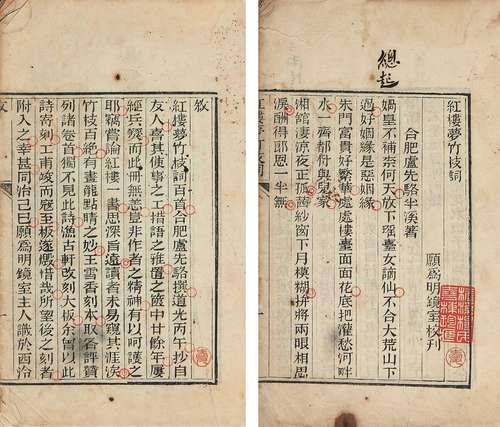 總起
紅樓夢竹枝詞
合肥盧先駱半溪著
願爲明鏡室校刊
媧皇不補奈何天放下瑶臺女謫仙不合大荒山下
過好姻緣是惡姻緣
朱門富貴好繁華處處樓臺面面花底把灌愁河畔
水一齊都付與兒家
湘館淒涼夜正孤茜紗窗下月模糊拚將兩眼相思
淚酬得郎恩一半無
紅樓夢竹枝詞
敍
紅樓夢竹枝詞百首合肥盧先駱撰道光丙午抄自
友人喜其使事之工措語之雅置之篋中廿餘年屢
經兵燹而此冊無恙豈非作者之精神有以呵護之
耶竊嘗論紅樓一書思深旨遠讀者未易窺其涯涘
竹枝百絶有畫龍點睛之妙王雪香刻本取各評贊
列諸卷首獨不見此詩漁古軒改刻大板亦曾以此
詩寄刻工甫竣而寇至板遂燬惜哉所望後之刻者
附入之幸甚同治己巳願爲明鏡室主人識於西冶